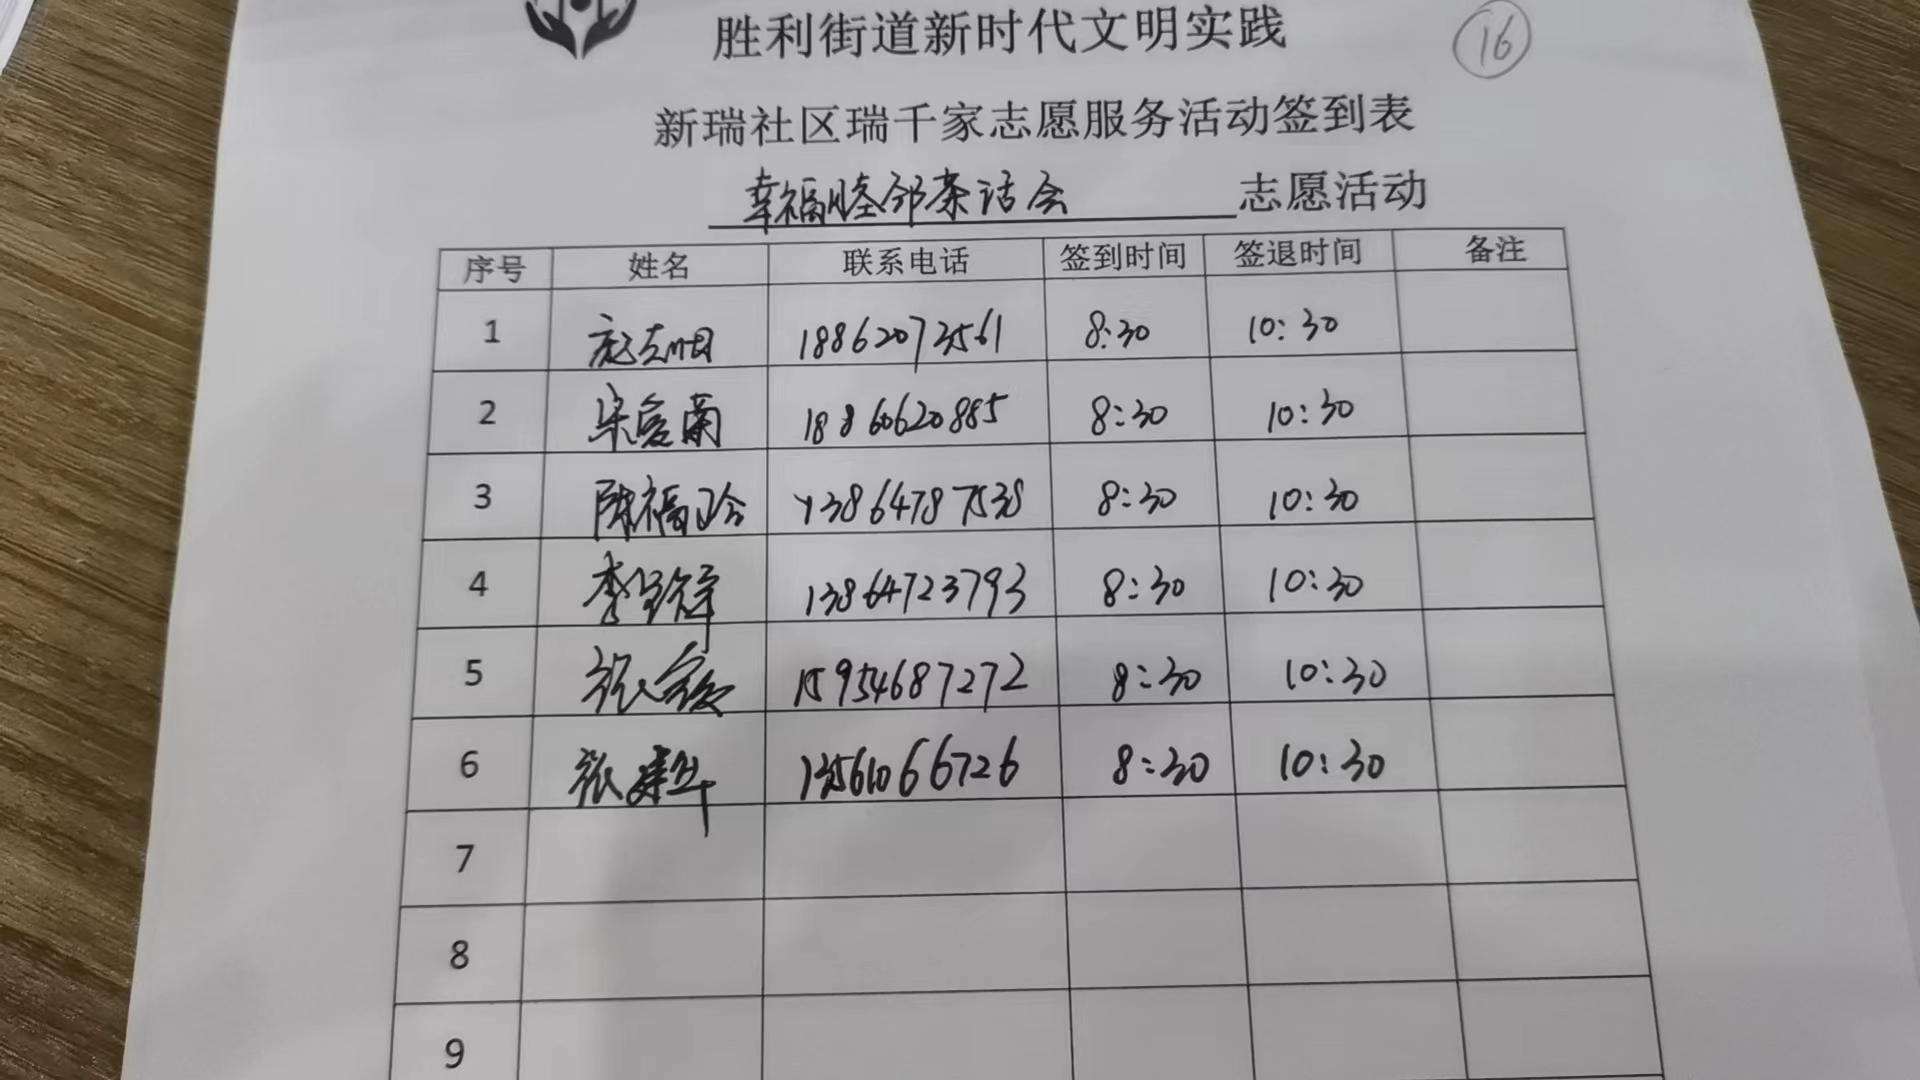 胜利街道新时代文明实践
16
新瑞社区瑞千家志愿服务活动签到表
幸福睦邻茶话会 志愿活动
序号 姓名 联系电话 签到时间 签退时间 备注
1 18862073561 8:30 10:30
2 宋爱菊 18860620885 8:30 10:30
3 陈福玲 13864787538 8:30 10:30
4 13864723793 8:30 10:30
5 15954687272 8:30 10:30
6 张建华 13561066726 8:30 10:30
7
8
9